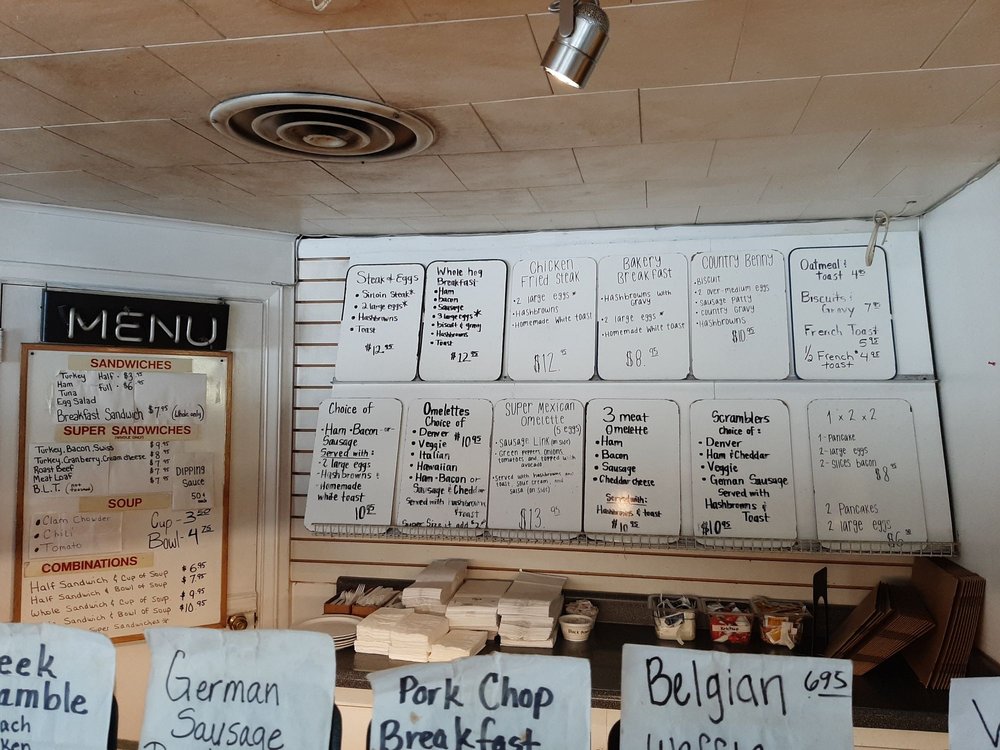 MENU
SANDWICHES
Turkey Half - $3
Ham Full - $6
Tuna
Egg Salad
Breakfast Sandwich $7.95 (whole only)
SUPER SANDWICHES
(WHOLE ONLY)
Turkey, Bacon, Swiss $9.45
Turkey, Cranberry, Cream cheese $8
Roast Beef $7
Meat Loaf $7
B.L.T. (not toasted) $7
DIPPING
SAUCE
50¢
each
SOUP
Clam Chowder
Chili
Tomato
Cup - 3.50
Bowl - 4.75
COMBINATIONS
Half Sandwich & Cup of Soup $6.95
Half Sandwich & Bowl of Soup $7.95
Whole Sandwich & Cup of Soup $9.95
Whole Sandwich & Bowl of Soup $10.95
Super Sandwiches
Steak & Eggs
Sirloin Steak*
2 large eggs*
Hashbrowns
Toast
$12.95
Whole hog
Breakfast:
Ham
Bacon
Sausage
3 large eggs*
biscuit & gravy
Hashbrowns
Toast
$12.95
CHICKEN
FRIED STEAK
2 large eggs*
Hashbrowns
Homemade White toast
$12.
BAKERY
BREAKFAST
Hashbrowns with
Gravy
2 large eggs*
Homemade White toast
$8.95
COUNTRY BENNY
Biscuit
2 over-medium eggs
Sausage Patty
Country Gravy
Hashbrowns
$10.95
Oatmeal &
toast 4.95
Biscuits &
Gravy 7.95
French Toast
5.95
½ French* 4.95
Choice of
Ham · Bacon · or
Sausage
Served with:
2 large eggs
Hashbrowns &
Homemade
white toast
10.95
Omelettes
Choice of
Denver $10.95
Veggie
Italian
Hawaiian
Ham · Bacon or
Sausage & Cheddar
Served with Hashbrowns
& Toast
Super Size it add $2
SUPER MEXICAN
OMELETTE
(5 eggs)
Sausage Link (on side)
Green peppers, onions,
tomatoes and topped with
avocado
Served with hashbrowns and
toast, sour cream, and
salsa (on side)
$13.
3 meat
Omelette
Ham
Bacon
Sausage
Cheddar cheese
Served with:
Hashbrowns & toast
$10.95
Scramblers
Choice of:
Denver
Ham & Cheddar
Veggie
German Sausage
Served with
Hashbrowns &
Toast
$10.95
1 x 2 x 2
1 Pancake
2 large eggs
2 slices bacon
$8.95
2 Pancakes
2 large eggs
$6
eek
amble
ach
ken
German
Sausage
Pork Chop
Breakfast
Belgian 6.95
Waffle